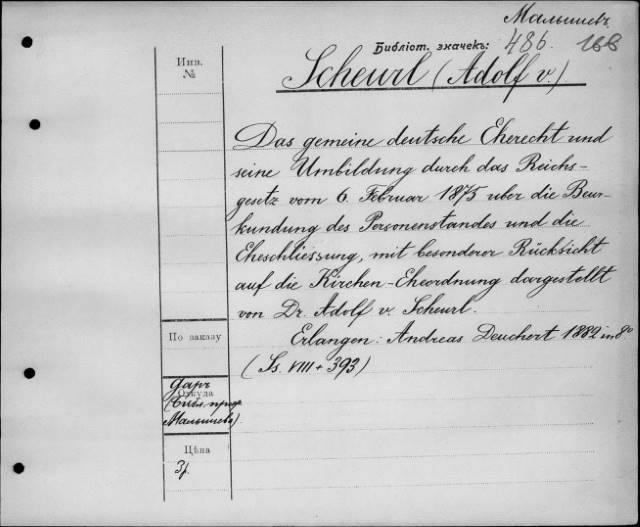 Малышевъ
Библіот. значекъ: 486. 168
Инв.
№
Scheurl (Adolf v.)
Das gemeine deutsche Eherecht und
seine Umbildung durch das Reichs-
gesetz vom 6. Februar 1875 uber die Beur-
kundung des Personenstandes und die
Eheschliessung, mit besonderer Rücksicht
auf die Kirchen-Eheordnung dargestellt
von Dr. Adolf v. Scheurl.
Erlangen: Andreas Deuchert 1882 in 8°
(Ss. VIII + 393)
По заказу
Даръ
Откуда
(Библ. проф.
Малышева).
Цѣна
3р.